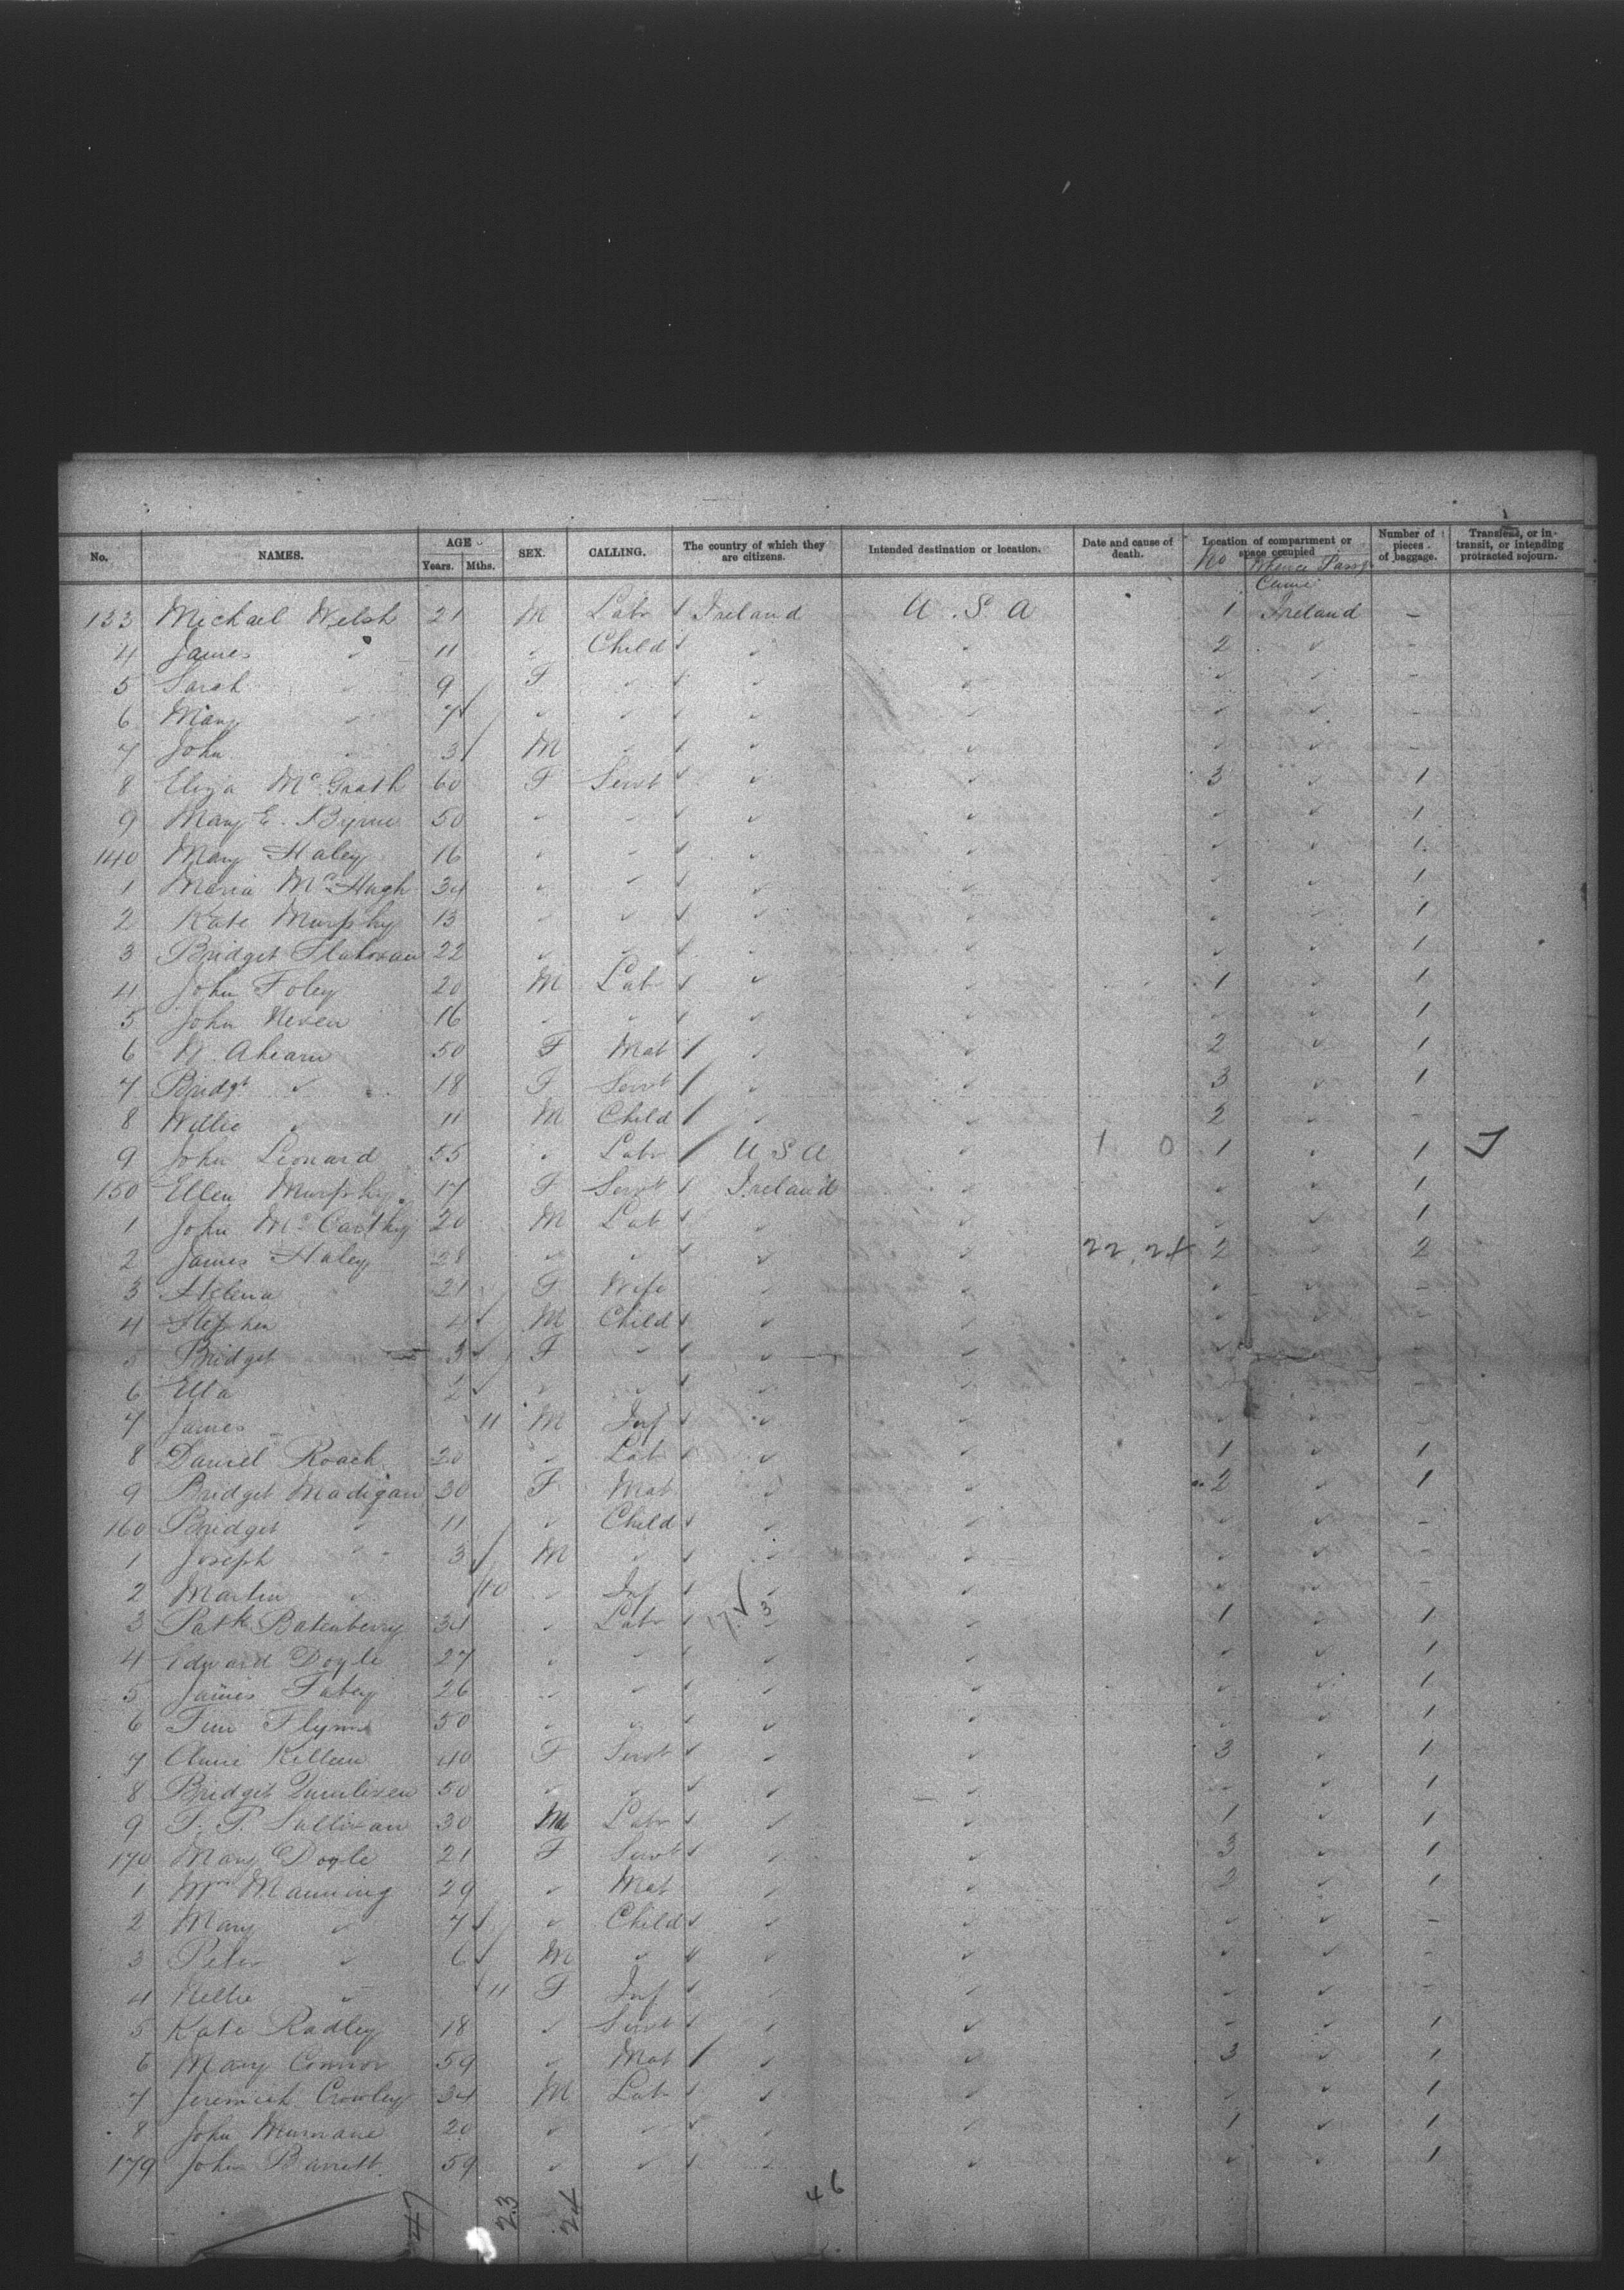 No. NAMES. AGE Years. Mths. SEX. CALLING. The country of which they are citizens. Intended destination or location. Date and cause of death. Location of compartment or space occupied Number of pieces of baggage. Transient, or in-transit, or intending protracted sojourn.
No Whence Passgr Came
133 Michael Welsh 21 M Labr Ireland U.S.A 1 Ireland –
4 James ✓ 11 ✓ Child ✓ ✓ 2 ✓ –
5 Sarah ✓ 9 F ✓ ✓ ✓ ✓ ✓ –
6 Mary ✓ 7 ✓ ✓ ✓ ✓ ✓ ✓ –
7 John ✓ 3 M ✓ ✓ ✓ ✓ ✓ –
8 Eliza McGrath 60 F Servt ✓ ✓ 3 ✓ 1
9 Mary E. Byrne 50 ✓ ✓ ✓ ✓ ✓ ✓ 1
140 Mary Haley 16 ✓ ✓ ✓ ✓ ✓ ✓ 1
1 Maria McHugh 34 ✓ ✓ ✓ ✓ ✓ ✓ 1
2 Kate Murphy 13 ✓ ✓ ✓ ✓ ✓ ✓ 1
3 Bridget 22 ✓ ✓ ✓ ✓ ✓ ✓ 1
4 John Foley 20 M Labr ✓ ✓ 1 ✓ 1
5 John Neven 16 ✓ ✓ ✓ ✓ ✓ ✓ 1
6 Ahearn 50 F Mat ✓ ✓ 2 ✓ 1
7 Bridgt ✓ 18 F Servt ✓ ✓ 3 ✓ 1
8 Willie ✓ 11 M Child ✓ ✓ 2 ✓ –
9 John Leonard 55 ✓ Labr U S A ✓ 1 0 1 ✓ 1
150 Ellen Murphy 17 F Servt Ireland ✓ ✓ ✓ 1
1 John McCarthy 20 M Labr ✓ ✓ ✓ ✓ 1
2 James Haley 28 ✓ ✓ ✓ ✓ 22, 24 2 ✓ 2
3 Helena 21 F Wife ✓ ✓ ✓ ✓ –
4 Stephen 4 M Child ✓ ✓ ✓ ✓ –
5 Bridget 3 F ✓ ✓ ✓ ✓ ✓ –
6 Ella 2 ✓ ✓ ✓ ✓ ✓ ✓ –
7 James 11 M Inf ✓ ✓ ✓ ✓ –
8 Daniel Roach 20 ✓ Labr ✓ ✓ 1 ✓ 1
9 Bridget Madigan 30 F Mat ✓ ✓ 2 ✓ 1
160 Bridget ✓ 11 ✓ Child ✓ ✓ ✓ ✓ –
1 Joseph ✓ 3 M ✓ ✓ ✓ ✓ ✓ –
2 Martin ✓ 10 ✓ Inf ✓ ✓ ✓ ✓ –
3 Patk Batenberry 34 ✓ Labr ✓ ✓ 1 ✓ 1
4 Edward Doyle 27 ✓ ✓ ✓ ✓ ✓ ✓ 1
5 James Fahey 26 ✓ ✓ ✓ ✓ ✓ ✓ 1
6 Tim Flynn 50 ✓ ✓ ✓ ✓ ✓ ✓ 1
7 Annie Killeen 40 F Servt ✓ ✓ 3 ✓ 1
8 Bridget Quinliven 50 ✓ ✓ ✓ ✓ ✓ ✓ 1
9 Sullivan 30 M Labr ✓ ✓ 1 ✓ 1
170 Mary Doyle 21 F Servt ✓ ✓ 3 ✓ 1
1 Mrs Manning 29 ✓ Mat ✓ ✓ 2 ✓ 1
2 Mary ✓ 7 ✓ Child ✓ ✓ ✓ ✓ –
3 Peter ✓ 6 M ✓ ✓ ✓ ✓ ✓ –
4 Nellie ✓ 11 F Inf ✓ ✓ ✓ ✓ –
5 Kate Radley 18 ✓ Servt ✓ ✓ ✓ ✓ 1
6 Mary Connor 59 ✓ Mat ✓ ✓ 3 ✓ 1
7 Jeremiah Crowley 34 M Labr ✓ ✓ ✓ ✓ 1
8 John Murnane 20 ✓ ✓ ✓ ✓ 1 ✓ 1
179 John Barrett 59 ✓ ✓ ✓ ✓ ✓ ✓ 1
47 23 24 46